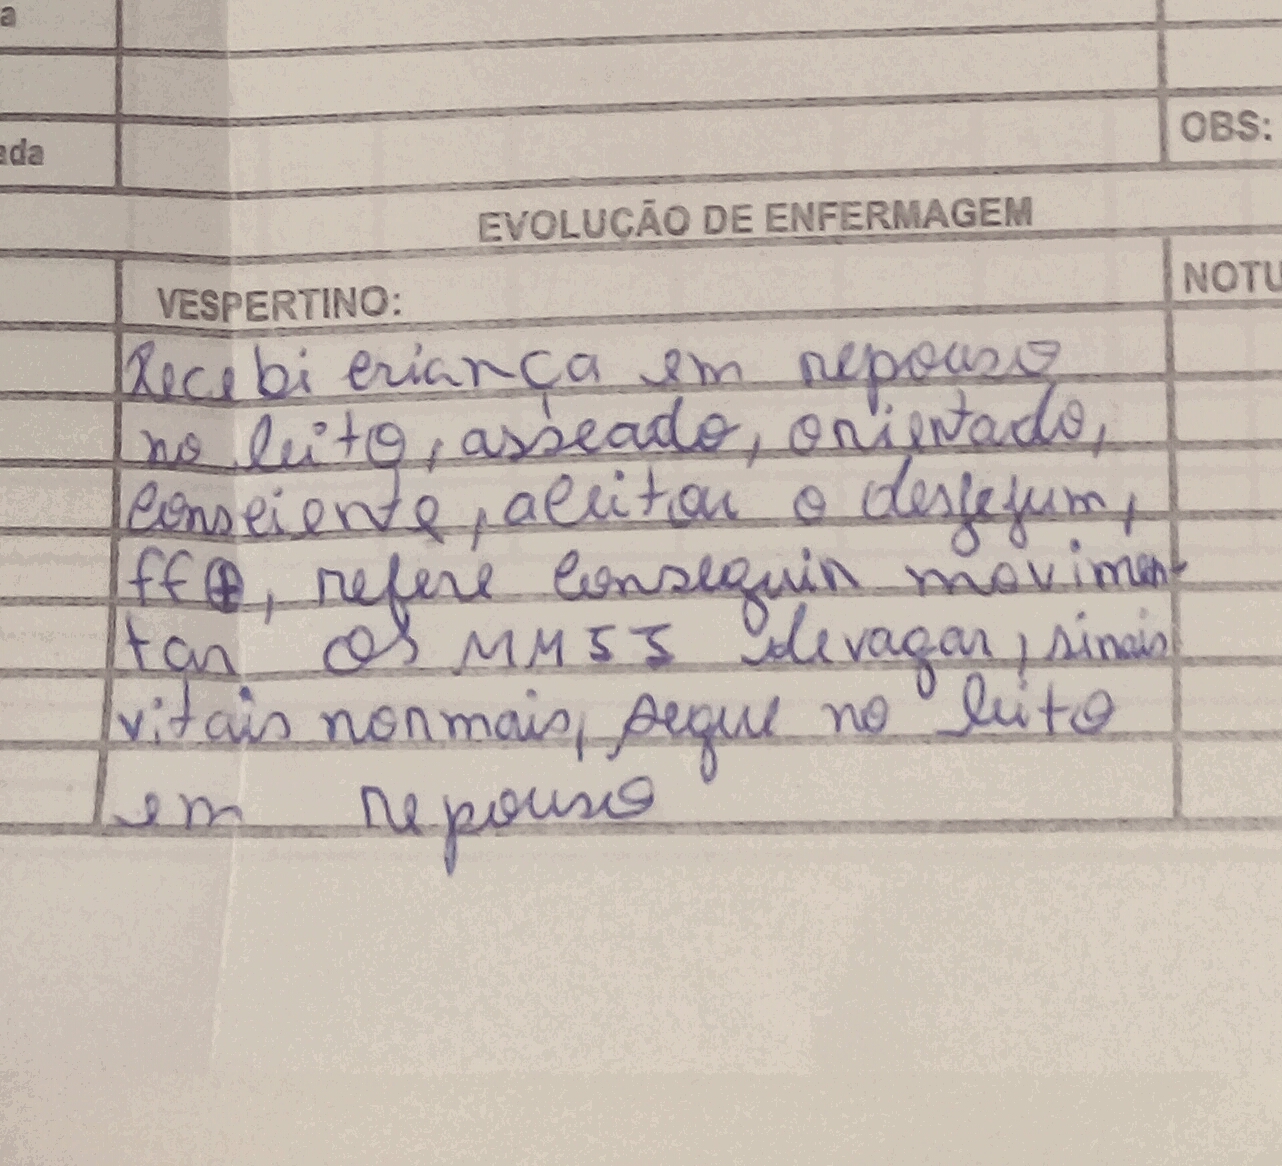 a
ada
OBS:
EVOLUÇÃO DE ENFERMAGEM
VESPERTINO:
NOTU
Recebi criança em repouso
no leito, asseado, orientado,
consciente, aceitou o desjejum,
ff⊕, refere conseguir movimen
tar os MMSS devagar, sinais
vitais normais, segue no leito
em repouso